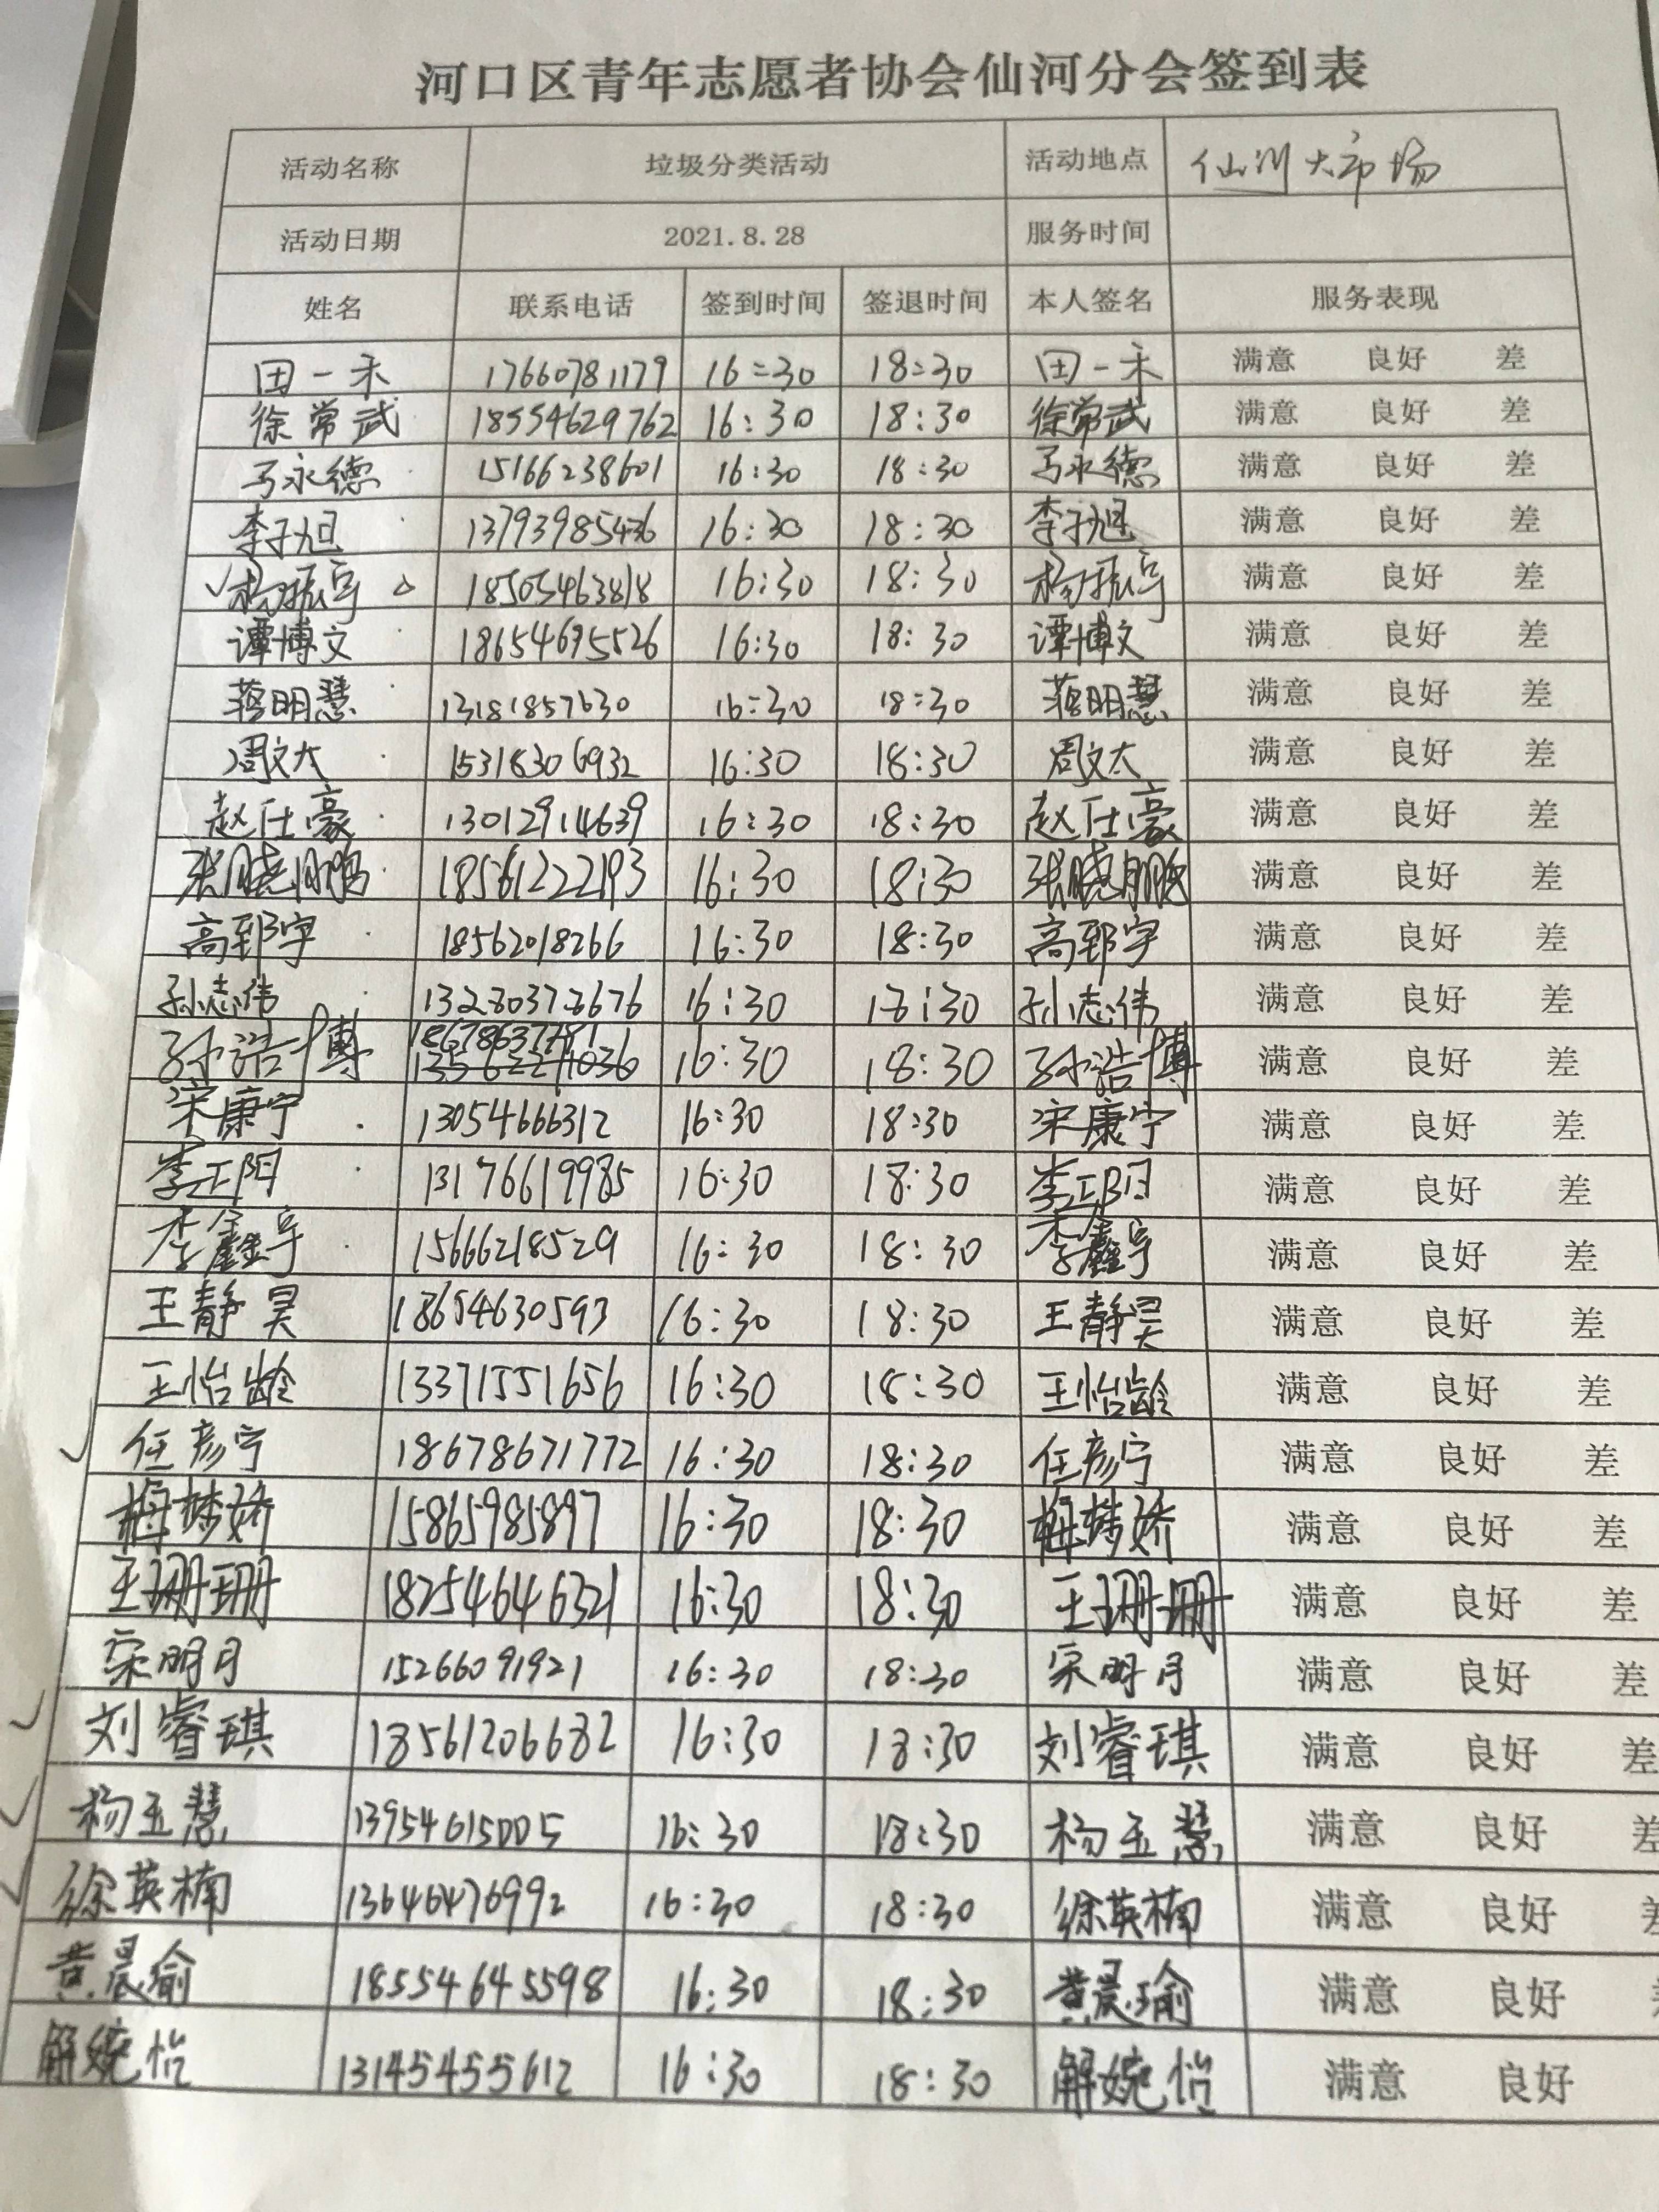 河口区青年志愿者协会仙河分会签到表
活动名称 垃圾分类活动 活动地点 仙河大市场
活动日期 2021.8.28 服务时间
姓名 联系电话 签到时间 签退时间 本人签名 服务表现
田一禾 17660781179 16:30 18:30 田一禾 满意 良好 差
徐常武 18554629762 16:30 18:30 徐常武 满意 良好 差
马永德 15166238601 16:30 18:30 马永德 满意 良好 差
李子旭 13793985436 16:30 18:30 李子旭 满意 良好 差
杨振宇 18505463818 16:30 18:30 杨振宇 满意 良好 差
谭博文 18654695526 16:30 18:30 谭博文 满意 良好 差
蒋明慧 13181857630 16:30 18:30 蒋明慧 满意 良好 差
周文太 15318306932 16:30 18:30 周文太 满意 良好 差
赵仕豪 13012914639 16:30 18:30 赵仕豪 满意 良好 差
张晓鹏 18561222193 16:30 18:30 张晓鹏 满意 良好 差
高郅宇 18562018266 16:30 18:30 高郅宇 满意 良好 差
孙志伟 13280373676 16:30 18:30 孙志伟 满意 良好 差
孙浩博 16:30 18:30 孙浩博 满意 良好 差
宋康宁 13054666312 16:30 18:30 宋康宁 满意 良好 差
李正阳 13176619985 16:30 18:30 李正阳 满意 良好 差
李鑫宇 15666218529 16:30 18:30 李鑫宇 满意 良好 差
王静昊 18654630593 16:30 18:30 王静昊 满意 良好 差
王怡龄 13371551656 16:30 18:30 王怡龄 满意 良好 差
任彦宁 18678671772 16:30 18:30 任彦宁 满意 良好 差
梅梦娇 15865985897 16:30 18:30 梅梦娇 满意 良好 差
王珊珊 18254646321 16:30 18:30 王珊珊 满意 良好 差
宋明月 15266091921 16:30 18:30 宋明月 满意 良好 差
刘睿琪 18561206682 16:30 18:30 刘睿琪 满意 良好 差
杨玉慧 13954615005 16:30 18:30 杨玉慧 满意 良好 差
徐英楠 13646476992 16:30 18:30 徐英楠 满意 良好
黄晨瑜 18554645598 16:30 18:30 黄晨瑜 满意 良好
解婉怡 13145455612 16:30 18:30 解婉怡 满意 良好